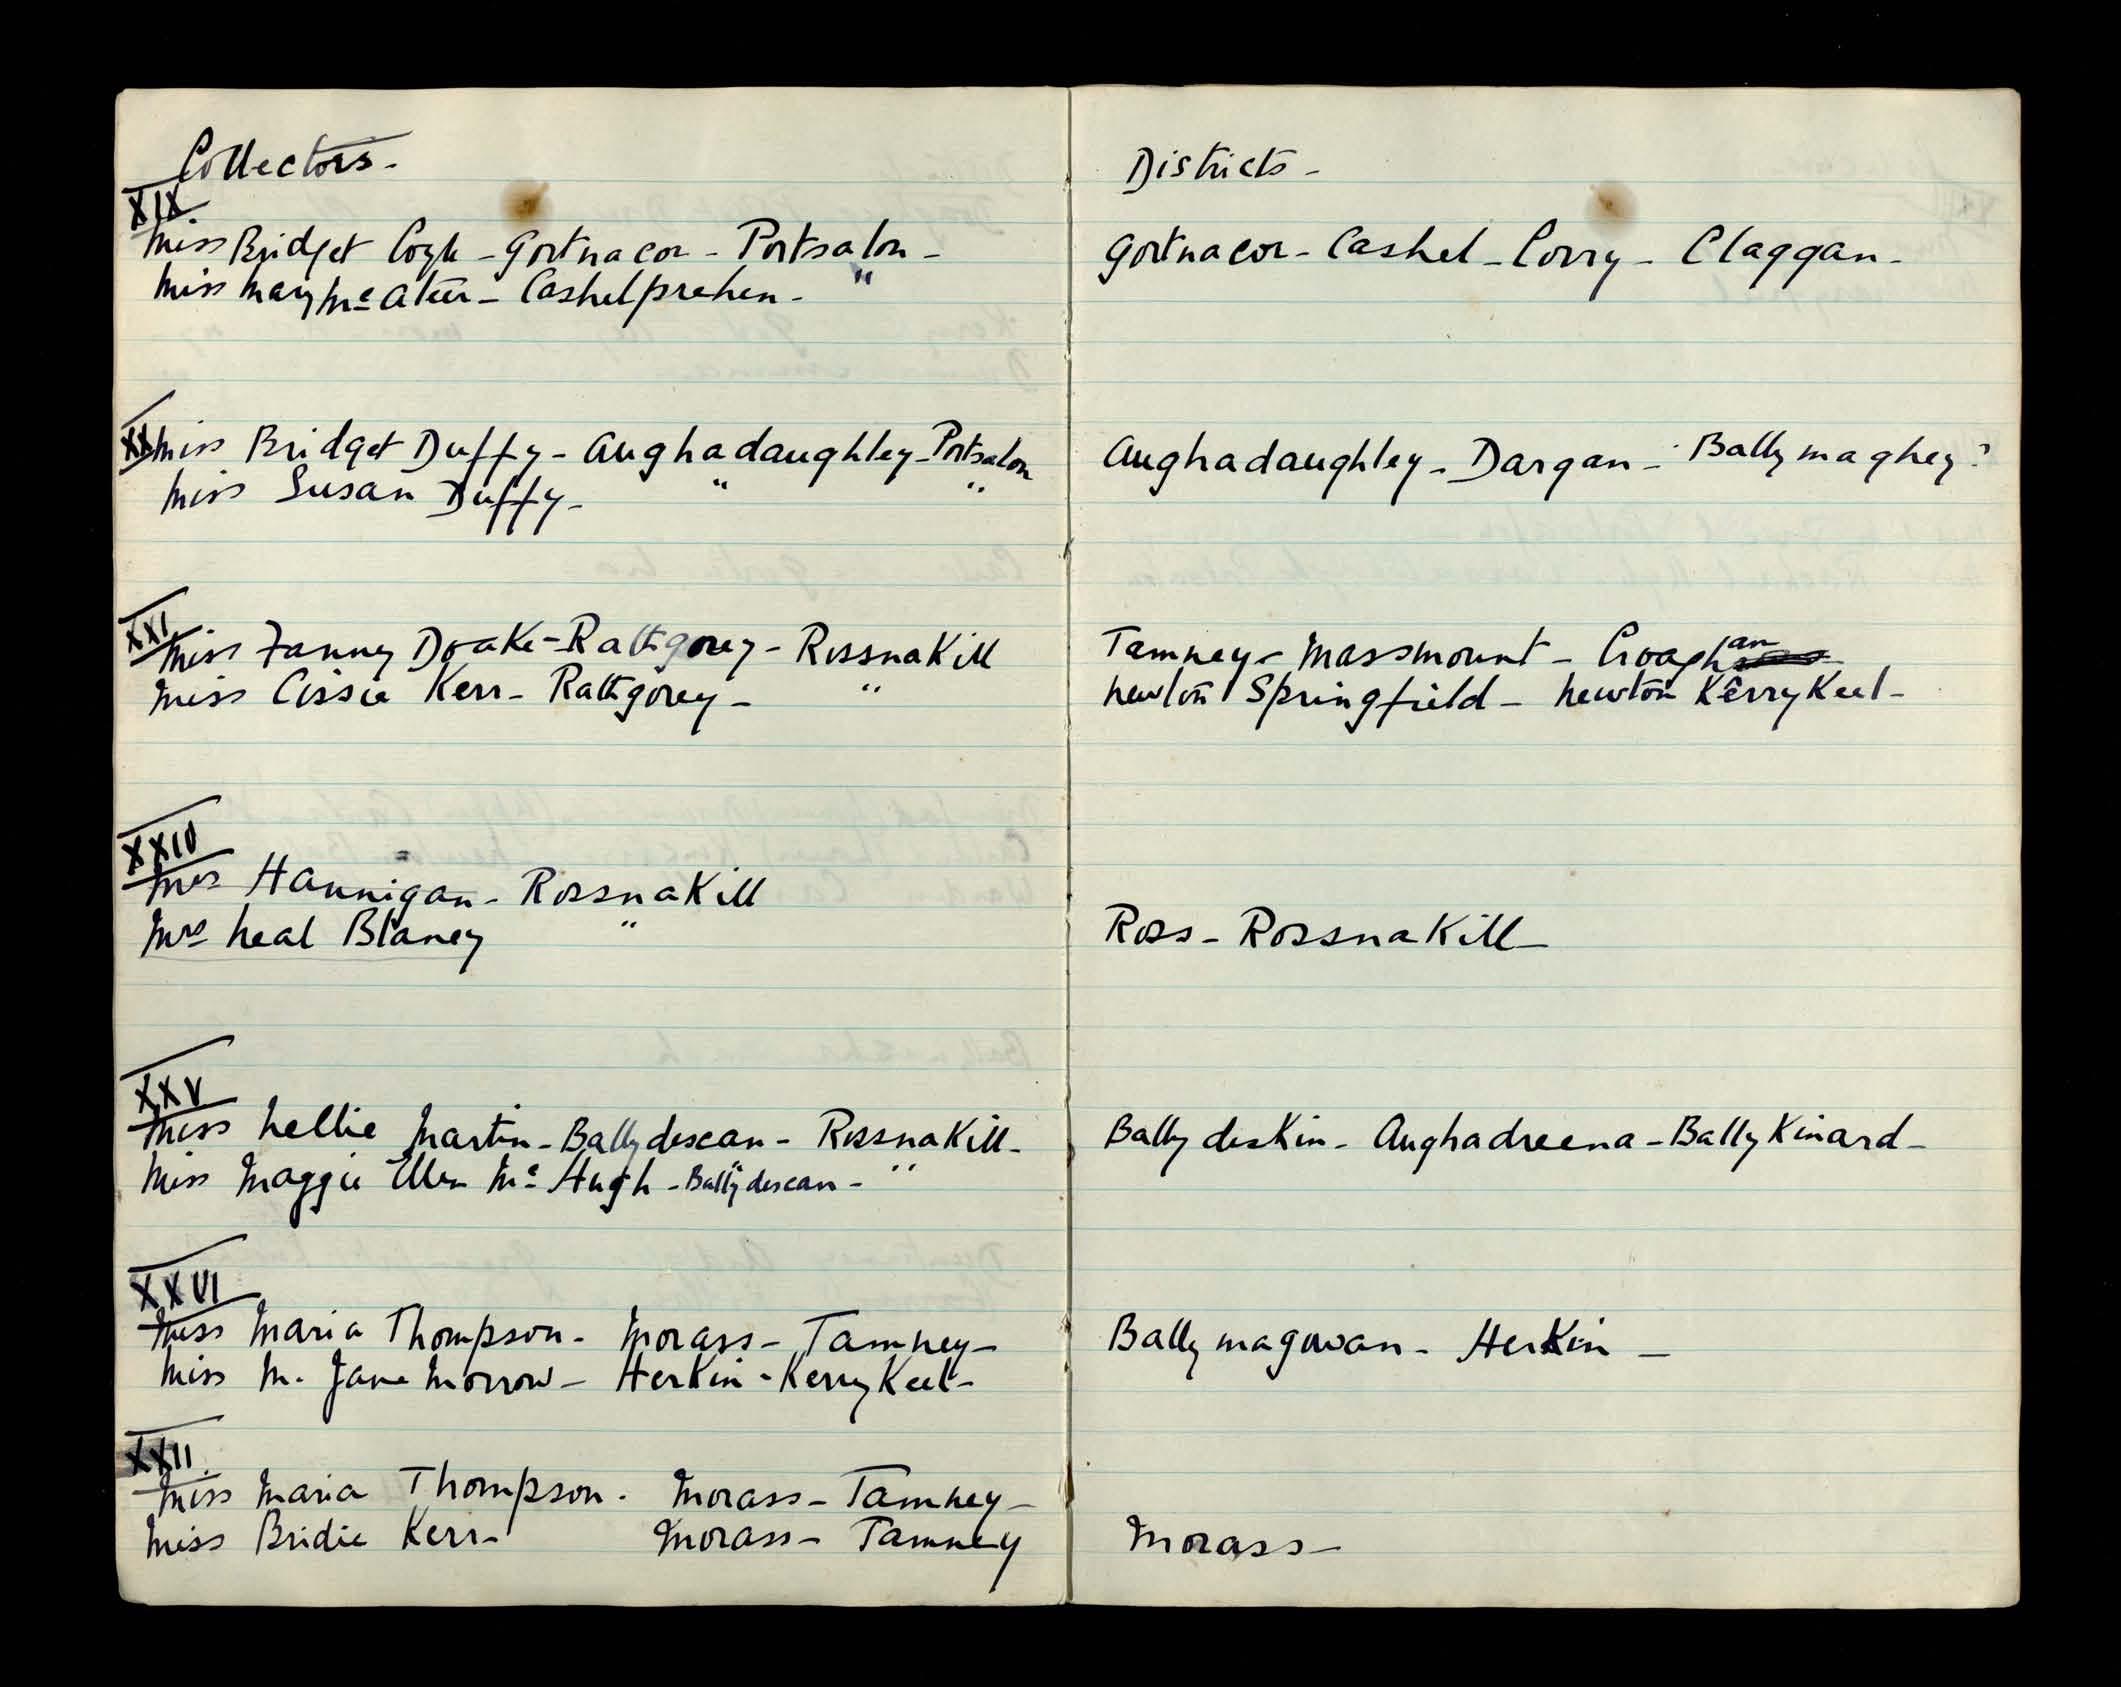 Collectors-
XIX
Miss Bridget Coyle - Gortnacor - Portsalon -
Miss Mary McAteer - Cashelprehen - "
XX Miss Bridget Duffy - Aughadaughley - Portsalon
Miss Susan Duffy - " "
XXI
Miss Fanny Doake - Rathgorey - RossnaKill
Miss Cissie Kerr - Rathgorey - "
XXIV
Mrs Hannigan - RossnaKill
Mrs Neal Blaney "
XXV
Miss Nellie Martin - Ballydescan - RossnaKill -
Miss Maggie Ellen Mc Hugh - Ballydescan - "
XXVI
Miss Maria Thompson - Morass - Tamney -
Miss M. Jane Morrow - HerKin - KerryKeel -
XXII.
Miss Maria Thompson - Morass - Tamney -
Miss Bridie Kerr - Morass - Tamney
Districts -
Gortnacor - Cashel - Corry - Claggan -
Aughadaughley - Dargan - Ballymaghey?
Tamney - Massmount - Croaghan
Newton Springfield - Newton KerryKeel -
Ross - RossnaKill -
BallydesKin - Aughadreena - BallyKinard -
Ballymagowan - HerKin -
Morass -